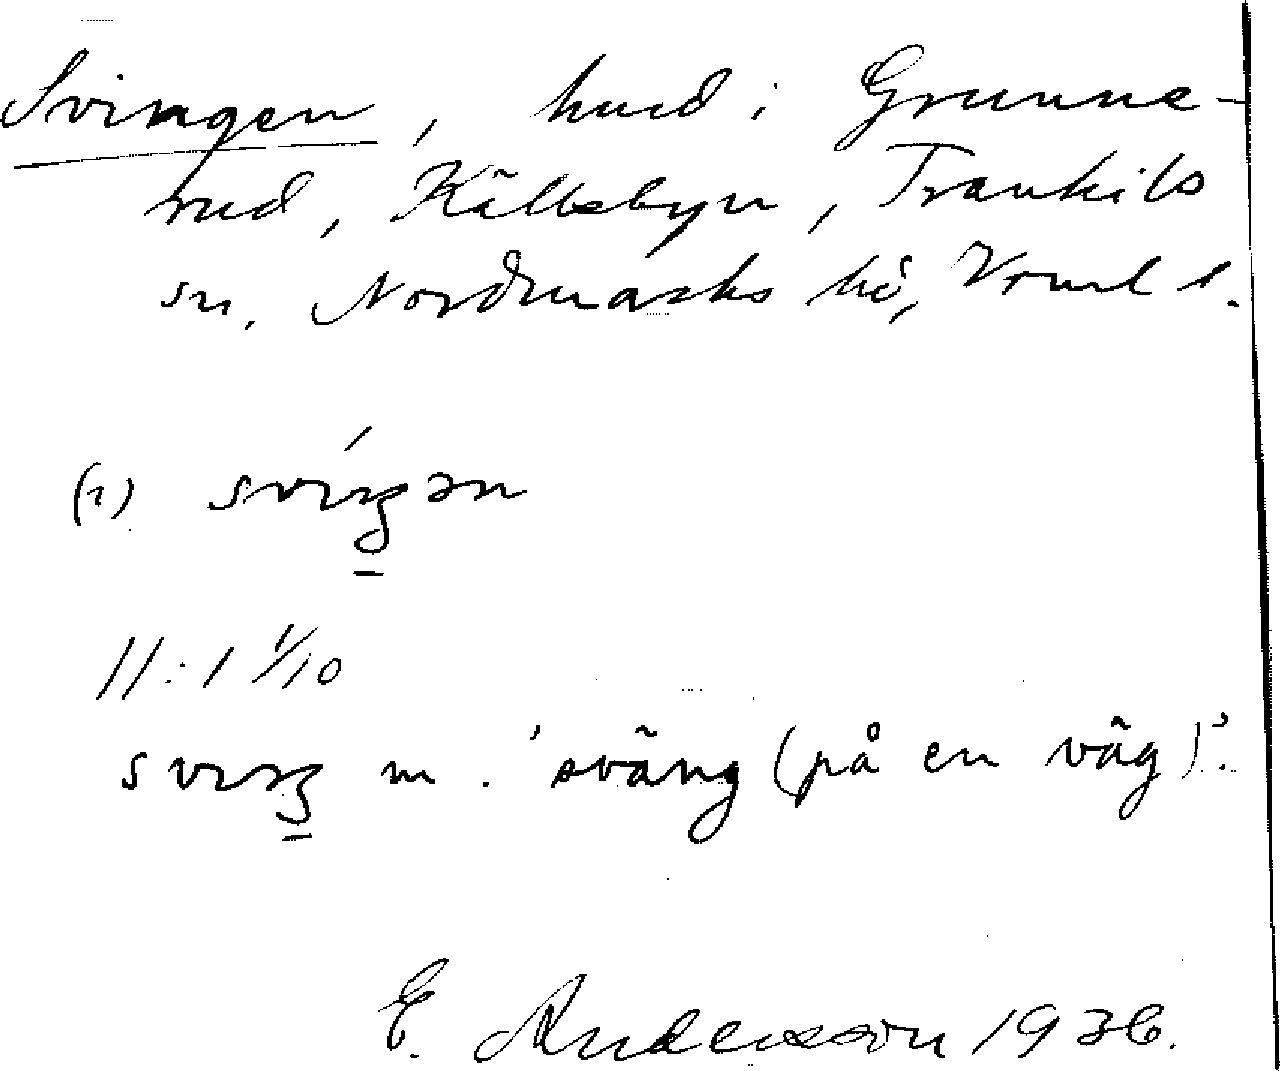 Svingen, hmd i Grunne-
rud, Källsbyn, Trankils
sn, Nordmarks hd, Vrml l.
(i) svíŋən
II:1 1/10
sviŋ m. 'sväng (på en väg)'.
E. Andersson 1936.